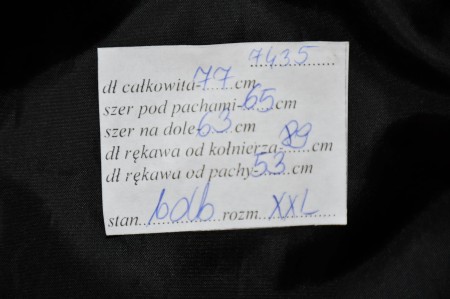 7435
dł całkowita-77cm
szer pod pachami-65cm
szer na dole-63cm
dł rękawa od kołnierza-89cm
dł rękawa od pachy-53cm
stan bdb rozm. XXL